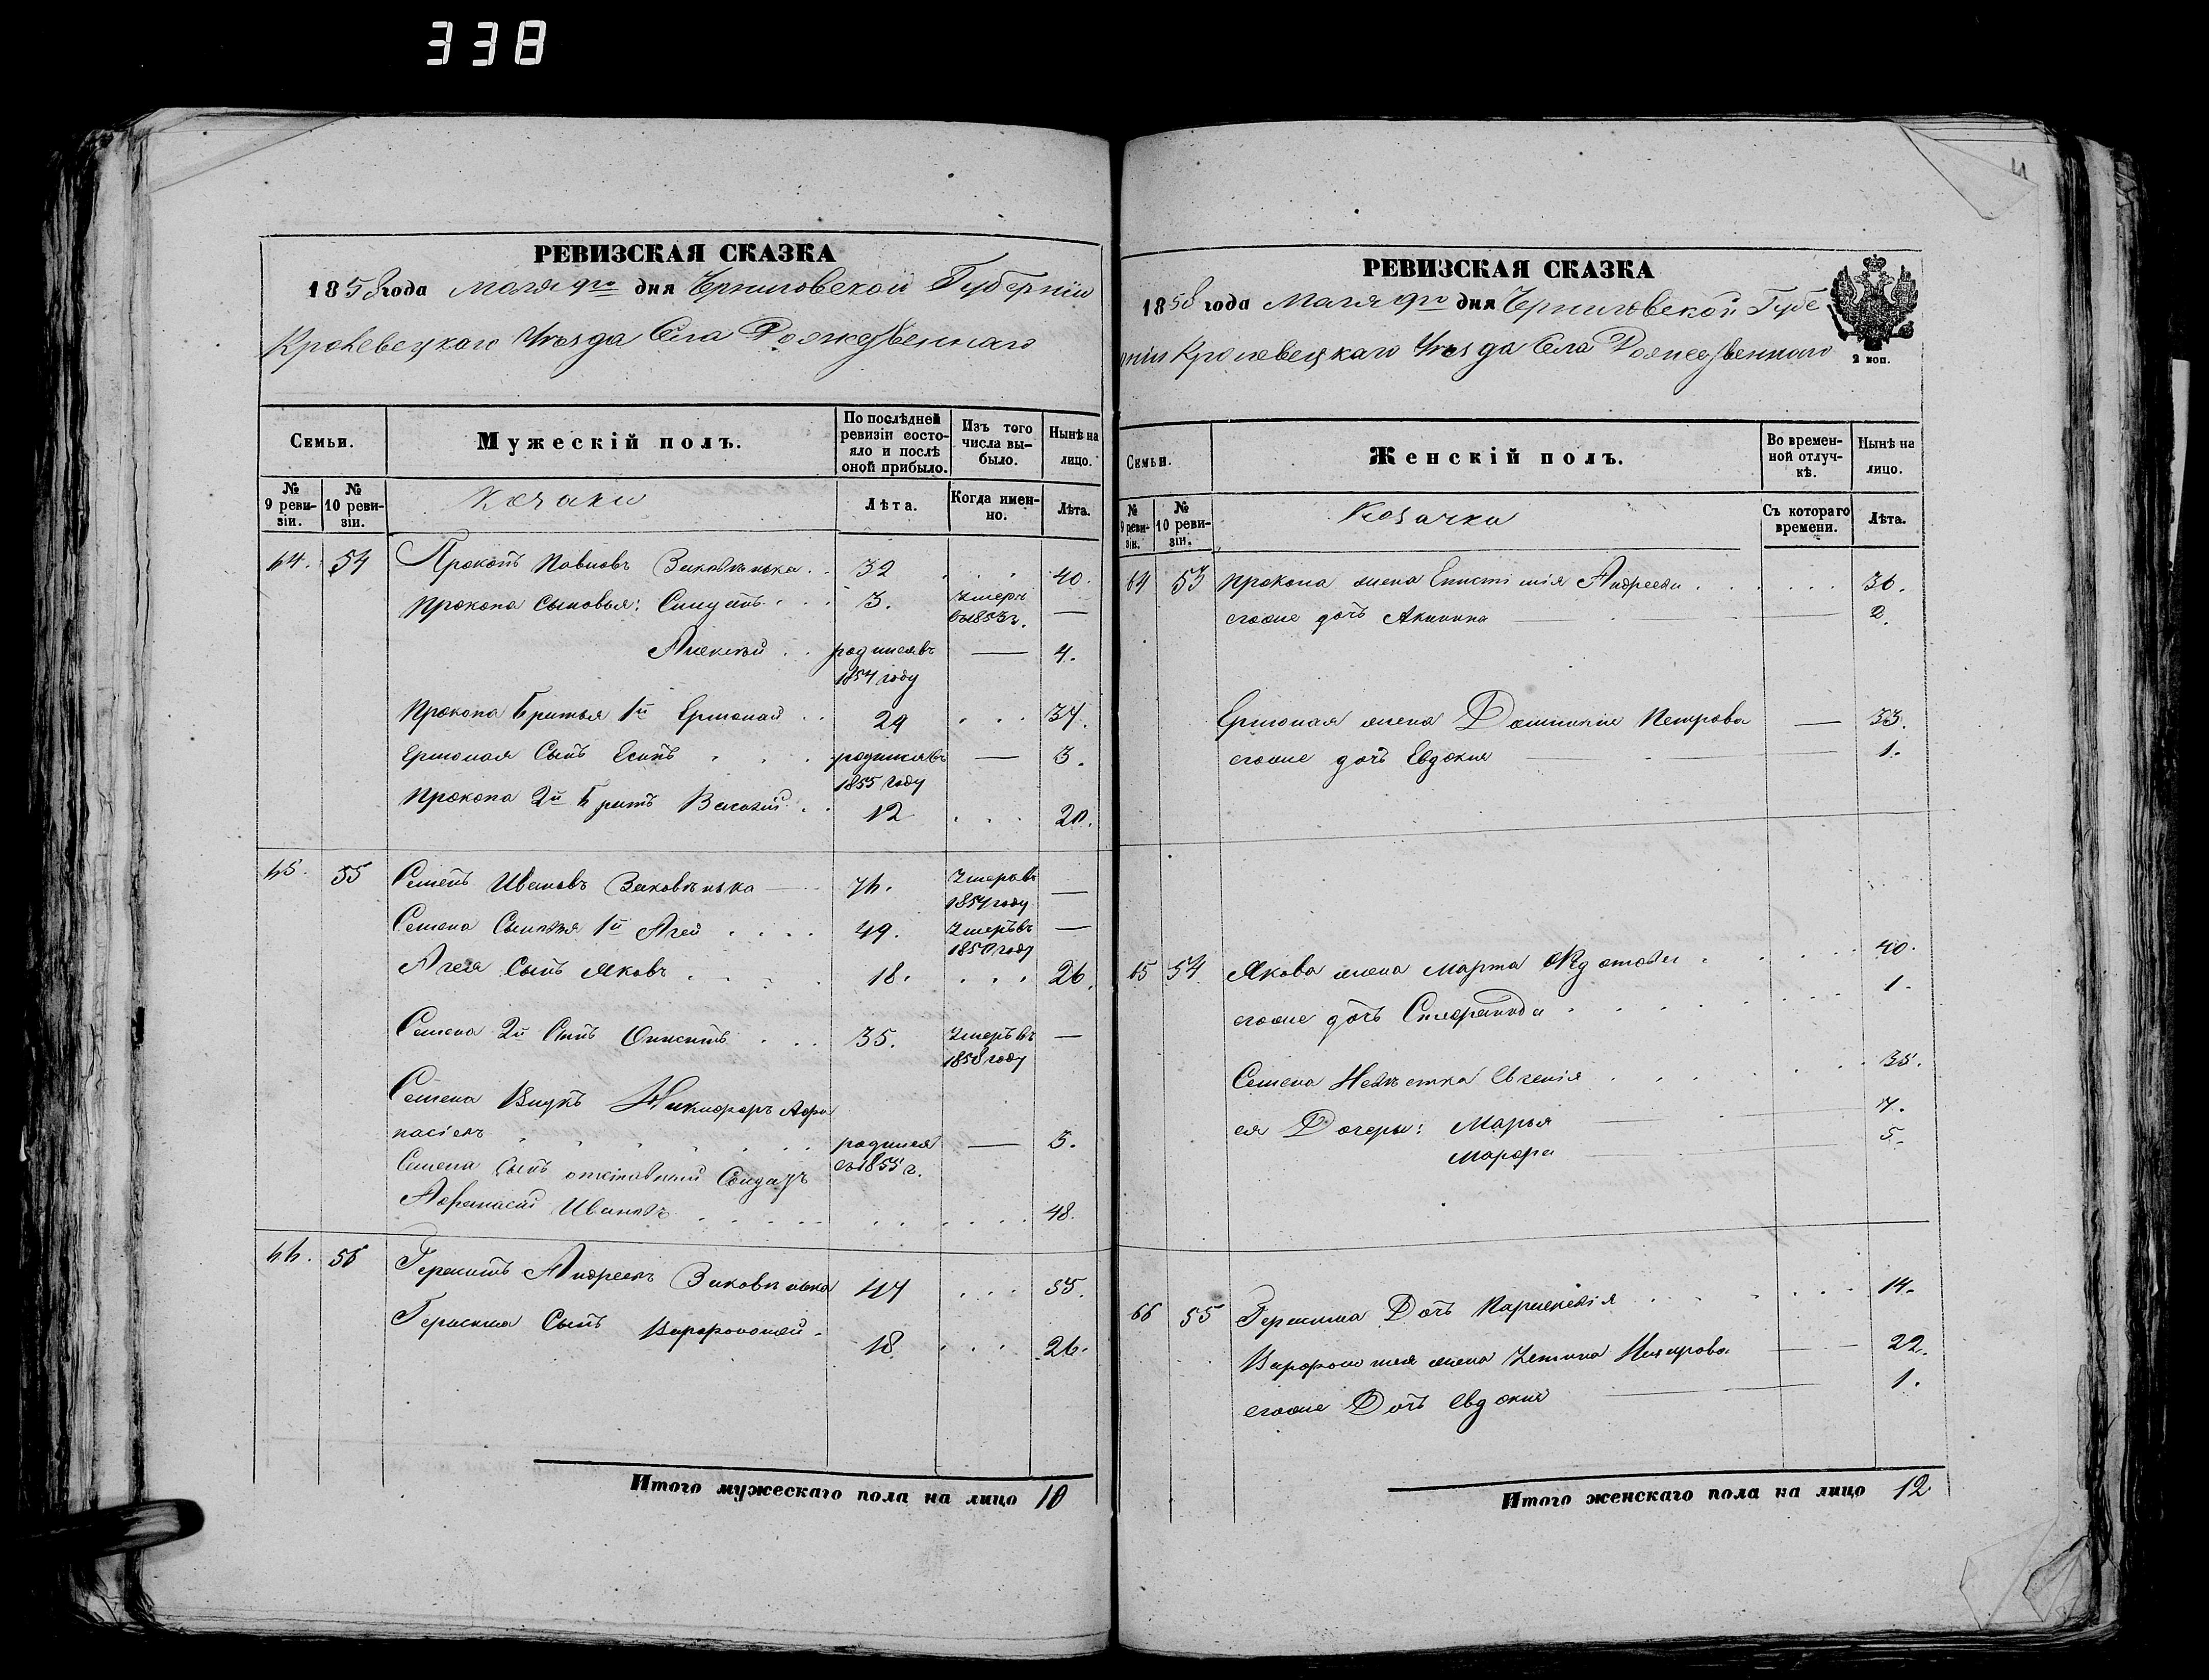 338
РЕВИЗСКАЯ СКАЗКА
1858 года Мая 9го дня Черниговской Губерніи
Кролевецкаго Уѣзда Села Рождественнаго
Семьи.
Мужескій полъ.
По послѣдней ревизіи состояло и послѣ оной прибыло.
Изъ того числа выбыло.
Нынѣ на лицо.
№ 9 ревизіи.
№ 10 ревизіи.
Козаки
Лѣта.
Когда именно.
Лѣта.
64. 54 Прокопъ Павловъ 32 40.
Прокопа Сыновья: 3. Умеръ въ 1853 г. —
Алексѣй родился въ 1854 году — 4.
Прокопа Братья 1й Ермолай 29 37.
Ермолая Сынъ Есипъ родился въ 1855 году — 3.
Прокопа 2й Братъ Василій 12 20.
65. 55 Семенъ Ивановъ 76. Умеръ въ 1854 году —
Семена Сыновья 1й Агей 49. Умеръ въ 1850 году —
Агея Сынъ Яковъ 18. 26.
Семена 2й Сынъ 35. Умеръ въ 1858 году —
Семена Внукъ Никифоръ Афанасіевъ родился въ 1855 г. — 3.
Семена Сынъ отставный Солдатъ
Афанасій Ивановъ 48.
66. 56 Герасимъ Андреевъ 47 55.
Герасима Сынъ Варфоломей 18 26.
Итого мужескаго пола на лицо 10
РЕВИЗСКАЯ СКАЗКА
1858 года Мая 9го дня Черниговской Губе
рніи Кролевецкаго Уѣзда Села Рождественнаго
2 коп.
Семьи.
Женскій полъ.
Во временной отлучкѣ.
Нынѣ на лицо.
№ 9 ревизіи.
№ 10 ревизіи.
Козачки
Съ котораго времени.
Лѣта.
64 53 Прокопа жена Андреева 36.
егоже дочь Акилина 2.
Ермолая жена Домникія Петрова — 33.
егоже дочь Евдокия — 1.
65 54. Якова жена Марта 40.
егоже дочь 1.
Семена Невѣстка Евгенія 38.
ея Дочери: Марья 7.
Марфа 5.
66 55 Герасима Дочь 14.
Варфоломея жена — 22.
егоже Дочь Евдокия 1.
Итого женскаго пола на лицо 12